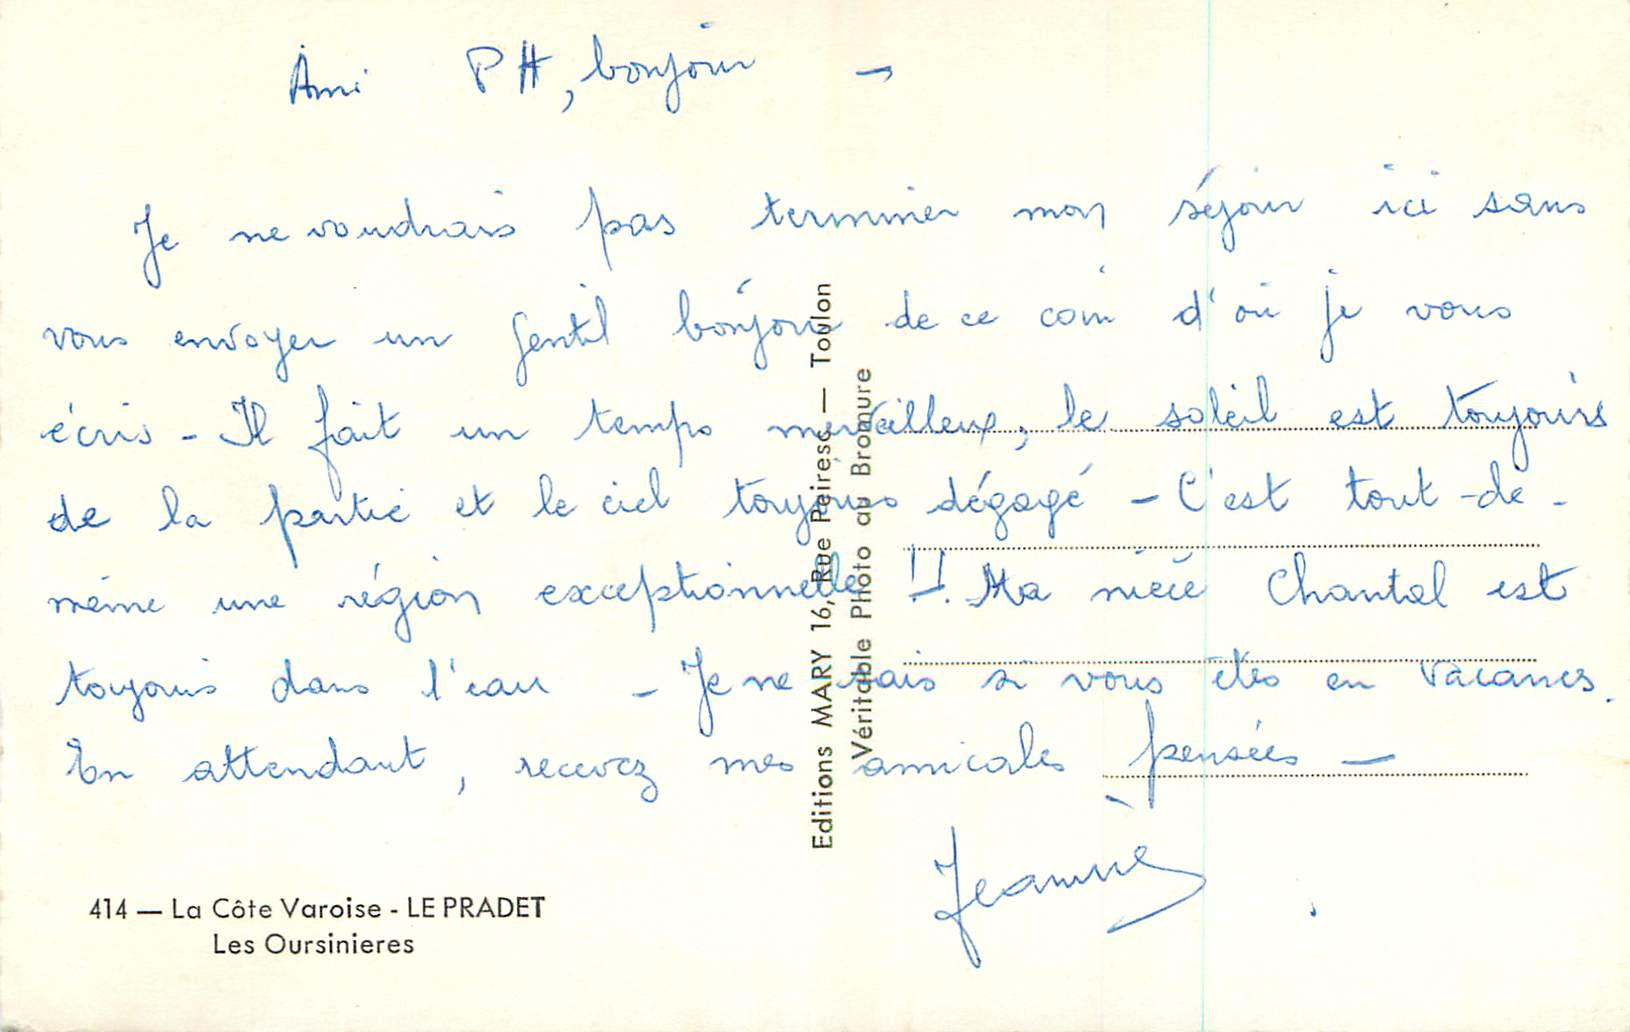 Ami PH, bonjour -
Je ne voudrais pas terminer mon séjour ici sans
vous envoyer un gentil bonjour de ce coin d'où je vous
écris - Il fait un temps merveilleux, le soleil est toujours
de la partie et le ciel toujours dégagé - C'est tout-de-
même une région exceptionnelle !!. Ma nièce Chantal est
toujours dans l'eau - Je ne sais si vous êtes en vacances.
En attendant, recevez mes amicales pensées -
Jeanne
Editions MARY 16, Rue Peiresc — Toulon
Véritable Photo au Bromure
414 — La Côte Varoise - LE PRADET
Les Oursinieres